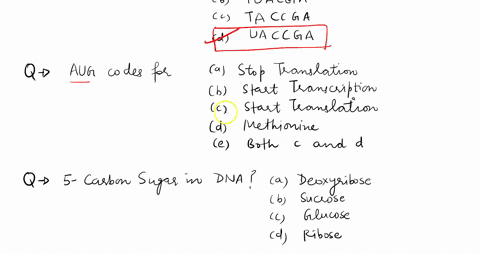 (c) TACCGA
(d) UACCGA
Q→ AUG codes for (a) Stop Translation
(b) Start Transcription
(c) Start Translation
(d) Methionine
(e) Both c and d
Q→ 5-Carbon Sugar in DNA? (a) Deoxyribose
(b) Sucrose
(c) Glucose
(d) Ribose